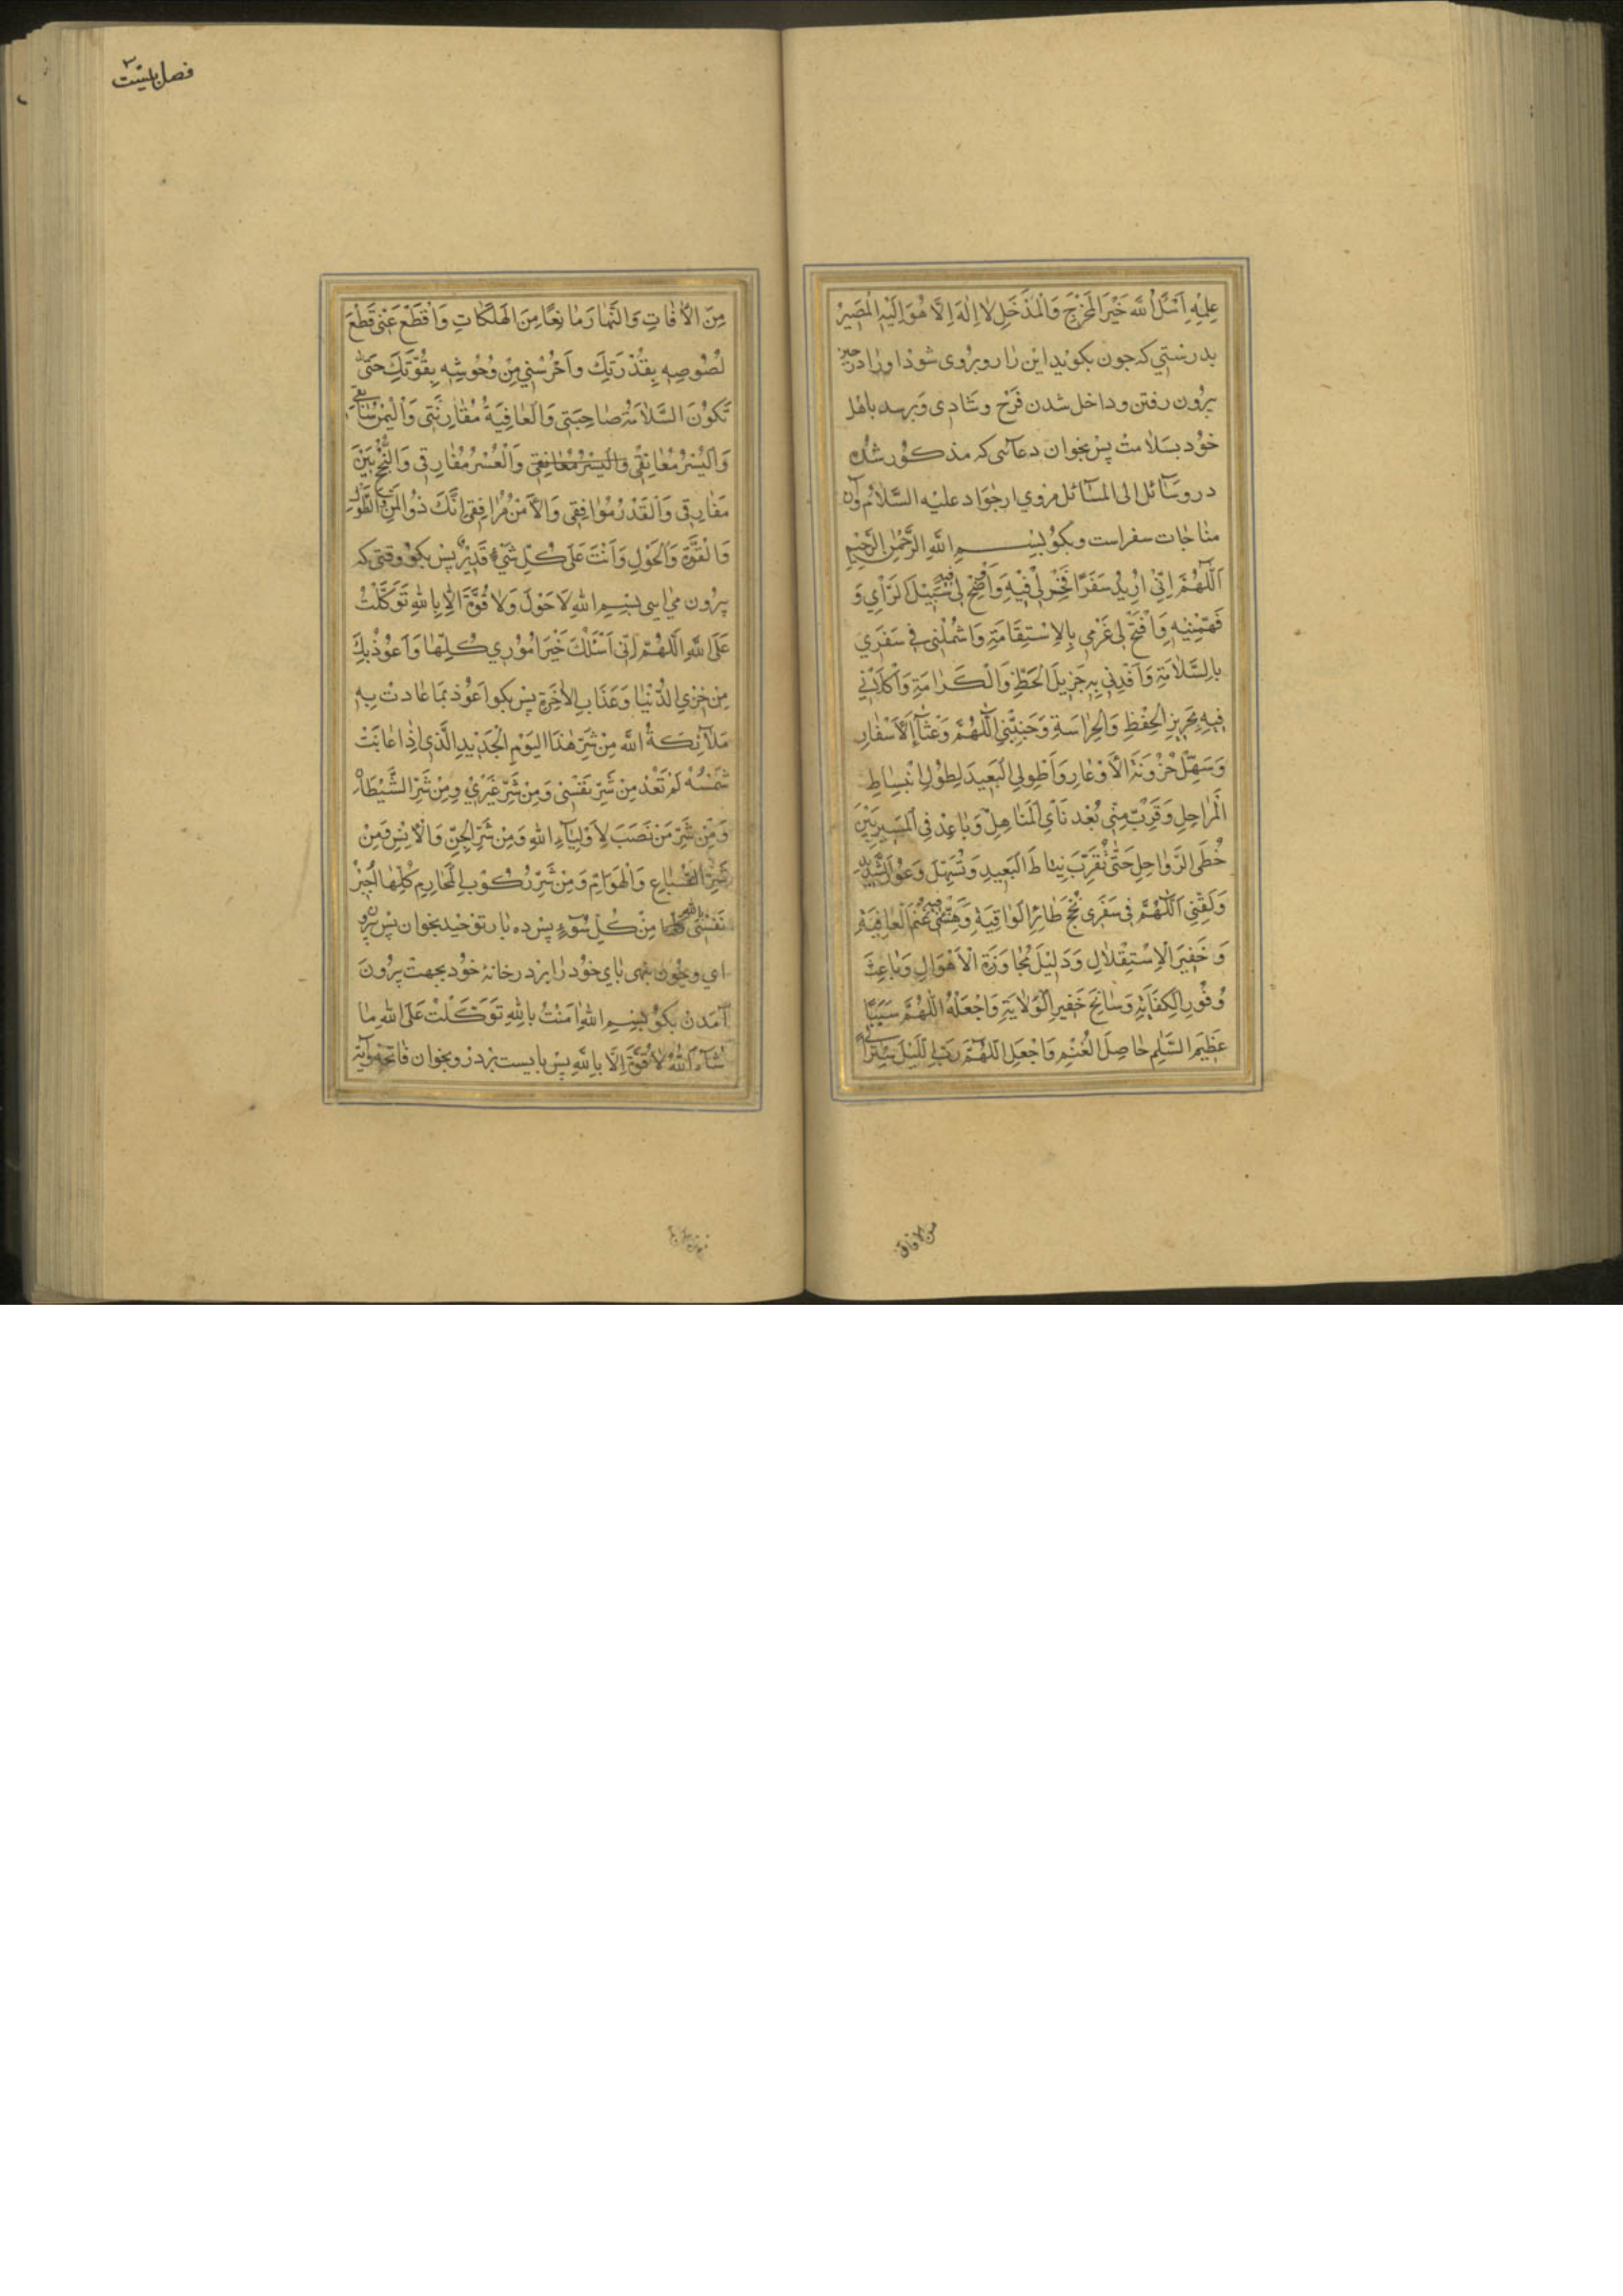 عِلْمِهِ اَسْئَلُ اللّٰهَ خَيْرَ الْمَخْرَجِ وَالْمَدْخَلِ لَا اِلٰهَ اِلَّا هُوَ اِلَيْهِ الْمَصِيْرُ
بدرستي كه جون بكويد اين را روبروى شود او را در حين
بيرون رفتن و داخل شدن فرح و شادي و برسد باهل
خود بسلامت پس بخوان دعائى كه مذكور شده
در وسائل الى المسائل مروي از جواد عليه السلام و آن
مناجات سفر است و بكو بسم الله الرحمن الرحيم
اَللّٰهُمَّ اِنِّي اُرِيْدُ سَفَرًا فَخِرْ لِي فِيْهِ وَاَوْضِحْ لِي فِيهِ سَبِيْلَ الرَّأْيِ وَ
فَهِّمْنِيْهِ وَافْتَحْ لِي عَزْمِي بِالْاِسْتِقَامَةِ وَاشْمُلْنِي فِي سَفَرِي
بِالسَّلَامَةِ وَاَفِدْنِي بِهِ جَزِيلَ الْحَظِّ وَالْكَرَامَةِ وَاكْلَأْنِي
فِيهِ بِحَرِيزِ الْحِفْظِ وَالْحِرَاسَةِ وَجَنِّبْنِي اَللّٰهُمَّ وَعْثَاءَ الْاَسْفَارِ
وَسَهِّلْ حُزُونَةَ الْاَوْعَارِ وَاطْوِ لِي الْبَعِيدَ لِطُولِ انْبِسَاطِ
الْمَرَاحِلِ وَقَرِّبْ مِنِّي بُعْدَ نَأْيِ الْمَنَاهِلِ وَبَاعِدْ فِي الْمَسِيرِ بَيْنَ
خُطَى الرَّوَاحِلِ حَتّٰى تُقَرِّبَ نِيَاطَ الْبَعِيدِ وَتُسَهِّلَ وُعُورَ الشَّدِيدِ
وَلَقِّنِي اَللّٰهُمَّ فِي سَفَرِي نُجْحَ طَائِرِ الْوَاقِيَةِ وَهَنِّئْنِي غُنْمَ الْعَافِيَةِ
وَخَفِيرَ الْاِسْتِقْلَالِ وَدَلِيْلَ مُجَاوَزَةِ الْاَهْوَالِ وَبَاعِثَ
وُفُورِ الْكِفَايَةِ وَسَانِحَ خَفِيرِ الْوَلَايَةِ وَاجْعَلْهُ اللّٰهُمَّ سَبَبًا
عَظِيمَ السِّلْمِ حَاصِلَ الْغُنْمِ وَاجْعَلِ اللّٰهُمَّ رَبِّ لِي اللَّيْلَ سِتْرًا
من الافات
فصل بيست
مِنَ الْاٰفَاتِ وَالنَّهَارَ مَانِعًا مِنَ الْهَلَكَاتِ وَاقْطَعْ عَنِّي قَطْعَ
لُصُوصِهِ بِقُدْرَتِكَ وَاحْرُسْنِي مِنْ وُحُوشِهِ بِقُوَّتِكَ حَتّٰى
تَكُونَ السَّلَامَةُ صَاحِبَتِي وَالْعَافِيَةُ مُقَارِنَتِي وَالْيُمْنُ سَائِقِي
وَالْيُسْرُ مُعَانِقِي وَالْيُسْرُ مُعَانِقِي وَالْعُسْرُ مُفَارِقِي وَالنُّجْحُ بَيْنَ
مَفَارِقِي وَالْقَدَرُ مُوَافِقِي وَالْاَمْنُ مُرَافِقِي اِنَّكَ ذُو الْمَنِّ وَالطَّوْلِ
وَالْقُوَّةِ وَالْحَوْلِ وَاَنْتَ عَلَى كُلِّ شَيْءٍ قَدِيْرٌ پس بكو وقتى كه
بيرون مي ايى بسم الله لَا حَوْلَ وَلَا قُوَّةَ اِلَّا بِاللهِ تَوَكَّلْتُ
عَلَى اللهِ اَللّٰهُمَّ اِنِّي اَسْئَلُكَ خَيْرَ اُمُوْرِي كُلِّهَا وَاَعُوْذُ بِكَ
مِنْ خِزْيِ الدُّنْيَا وَعَذَابِ الْاٰخِرَةِ پس بكو اَعُوْذُ بِمَا عَاذَتْ بِهِ
مَلَائِكَةُ اللّٰهِ مِنْ شَرِّ هٰذَا الْيَوْمِ الْجَدِيدِ الَّذِي اِذَا غَابَتْ
شَمْسُهُ لَمْ تَعُدْ مِنْ شَرِّ نَفْسِي وَمِنْ شَرِّ غَيْرِي وَمِنْ شَرِّ الشَّيْطَانِ
وَمِنْ شَرِّ مَنْ نَصَبَ لِاَوْلِيَاءِ اللهِ وَمِنْ شَرِّ الْجِنِّ وَالْاِنْسِ وَمِنْ
شَرِّ السِّبَاعِ وَالْهَوَامِّ وَمِنْ شَرِّ رُكُوْبِ الْمَحَارِمِ كُلِّهَا اُجِيْرُ
نَفْسِي بِاللّٰهِ مِنْ كُلِّ سُوءٍ پس ده بار توحيد بخوان پس بيرون
اي و چون بنهى پاي خود را بر در خانهٔ خود بجهت بيرون
آمدن بكو بسم الله اٰمَنْتُ بِاللهِ تَوَكَّلْتُ عَلَى اللهِ مَا
شَاءَ اللّٰهُ لَا قُوَّةَ اِلَّا بِاللهِ پس بايست بر در و بخوان فاتحه و آية